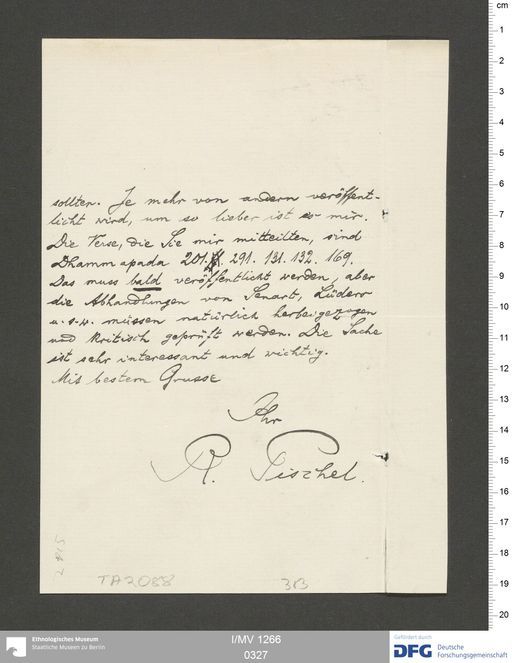 sollten. Je mehr von andern veröffent-
licht wird, um so lieber ist es mir.
Die Verse, die Sie mir mitteilten, sind
Dhammapada 201. 291. 131. 132. 169.
Das muss bald veröffentlicht werden, aber
die Abhandlungen von Senart, Lüders
u.s.w. müssen natürlich herbeigezogen
und kritisch geprüft werden. Die Sache
ist sehr interessant und wichtig.
Mit bestem Grusse
Ihr
R. Pischel.
TA2088
313
cm
1
2
3
4
5
6
7
8
9
10
11
12
13
14
15
16
17
18
19
20
Ethnologisches Museum
Staatliche Museen zu Berlin
I/MV 1266
0327
Gefördert durch
DFG Deutsche
Forschungsgemeinschaft